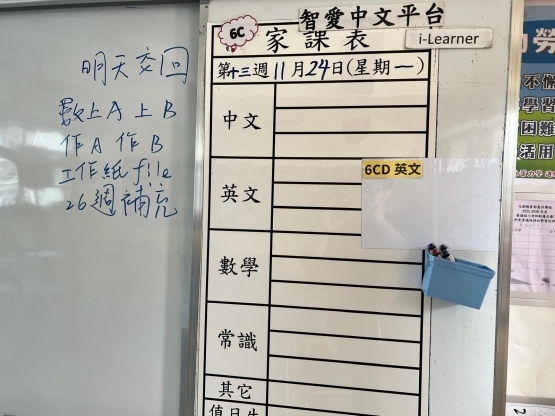 明天交回
數上A 上B
作A 作B
工作紙 file
26週補充
智愛中文平台
i-Learner
6C
家課表
第十三週 11月24日(星期一)
中文
英文
6CD 英文
數學
常識
其它
值日生
不懈
學習
困難
活用